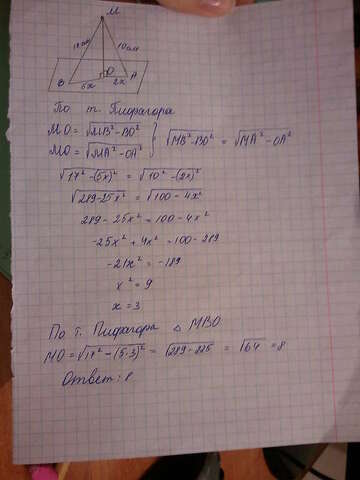 M
17 см 10 см
B 5x O 2x A
По т. Пифагора
MO = √MB² - BO² } √MB² - BO² = √MA² - OA²
MO = √MA² - OA²
√17² - (5x)² = √10² - (2x)²
√289 - 25x² = √100 - 4x²
289 - 25x² = 100 - 4x²
-25x² + 4x² = 100 - 289
-21x² = -189
x² = 9
x = 3
По т. Пифагора △ MBO
MO = √17² - (5·3)² = √289 - 225 = √64 = 8
Ответ: 8